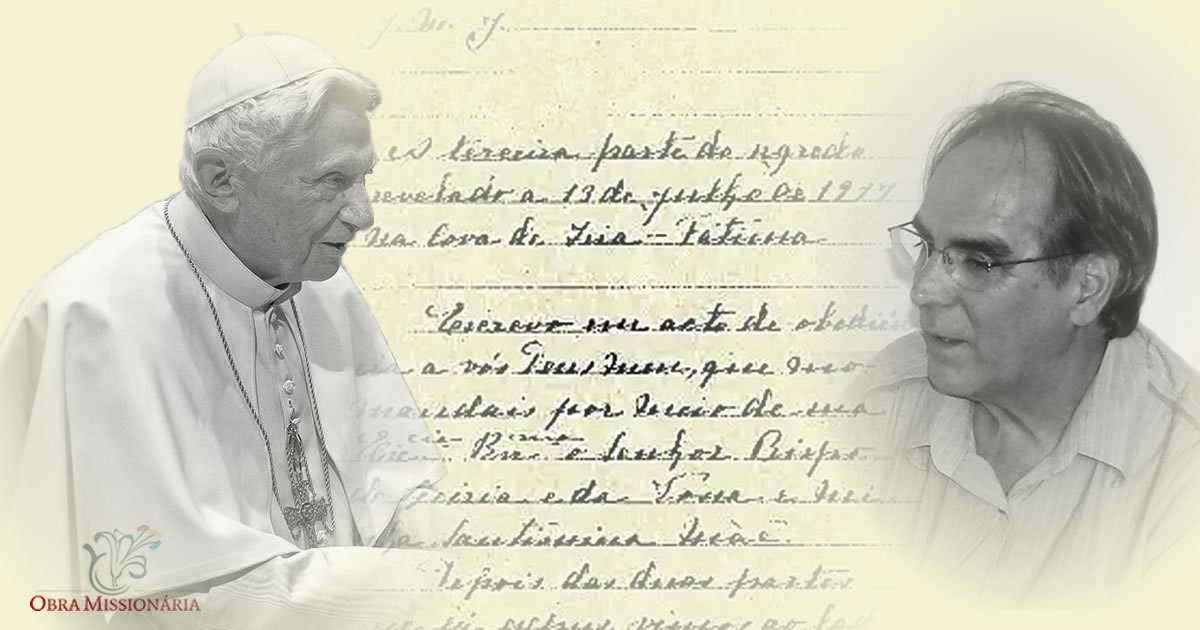 J. M. J.
A terceira parte do segredo
revelado a 13 de julho de 1917
na Cova de Iria - Fátima.
Escrevo em acto de obediên
cia a vós Deus meu, que mo
mandais por meio de sua
Ex.cia Rev.ma o Senhor Bispo
de Leiria e da Vossa e mi
nha Santíssima Mãe.
Depois das duas partes
que já expus, vimos ao lad
OBRA MISSIONÁRIA